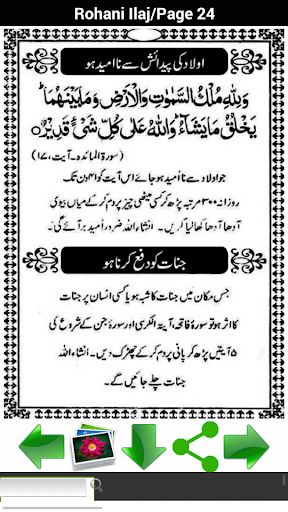 Rohani Ilaj/Page 24
اولاد کی پیدائش سے نا امید ہو
وَلِلّٰهِ مُلْكُ السَّمٰوٰتِ وَالْاَرْضِ وَمَا بَيْنَهُمَا ؕ
يَخْلُقُ مَا يَشَآءُ ؕ وَاللّٰهُ عَلٰى كُلِّ شَىْءٍ قَدِيْرٌ ○
(سورۃ المائدہ۔آیت،۱۷)
جو اولاد سے نا امید ہو جائے اس آیت کو ۴۱ دن تک
روزانہ ۳۰۰ مرتبہ پڑھ کر کسی میٹھی چیز پر دم کر کے میاں بیوی
آدھا آدھا کھا لیا کریں۔ انشاء اللہ ضرور اُمید بر آئے گی۔
جنات کو دفع کرنا ہو
جس مکان میں جنات کا شبہ ہو یا کسی انسان پر جنات
کا اثر ہو تو سورۃ فاتحہ، آیتہ الکرسی اور سورۃ جن کے شروع کی
۵ آیتیں پڑھ کر پانی پر دم کر کے چھڑک دیں۔ انشاء اللہ
جنات چلے جائیں گے۔